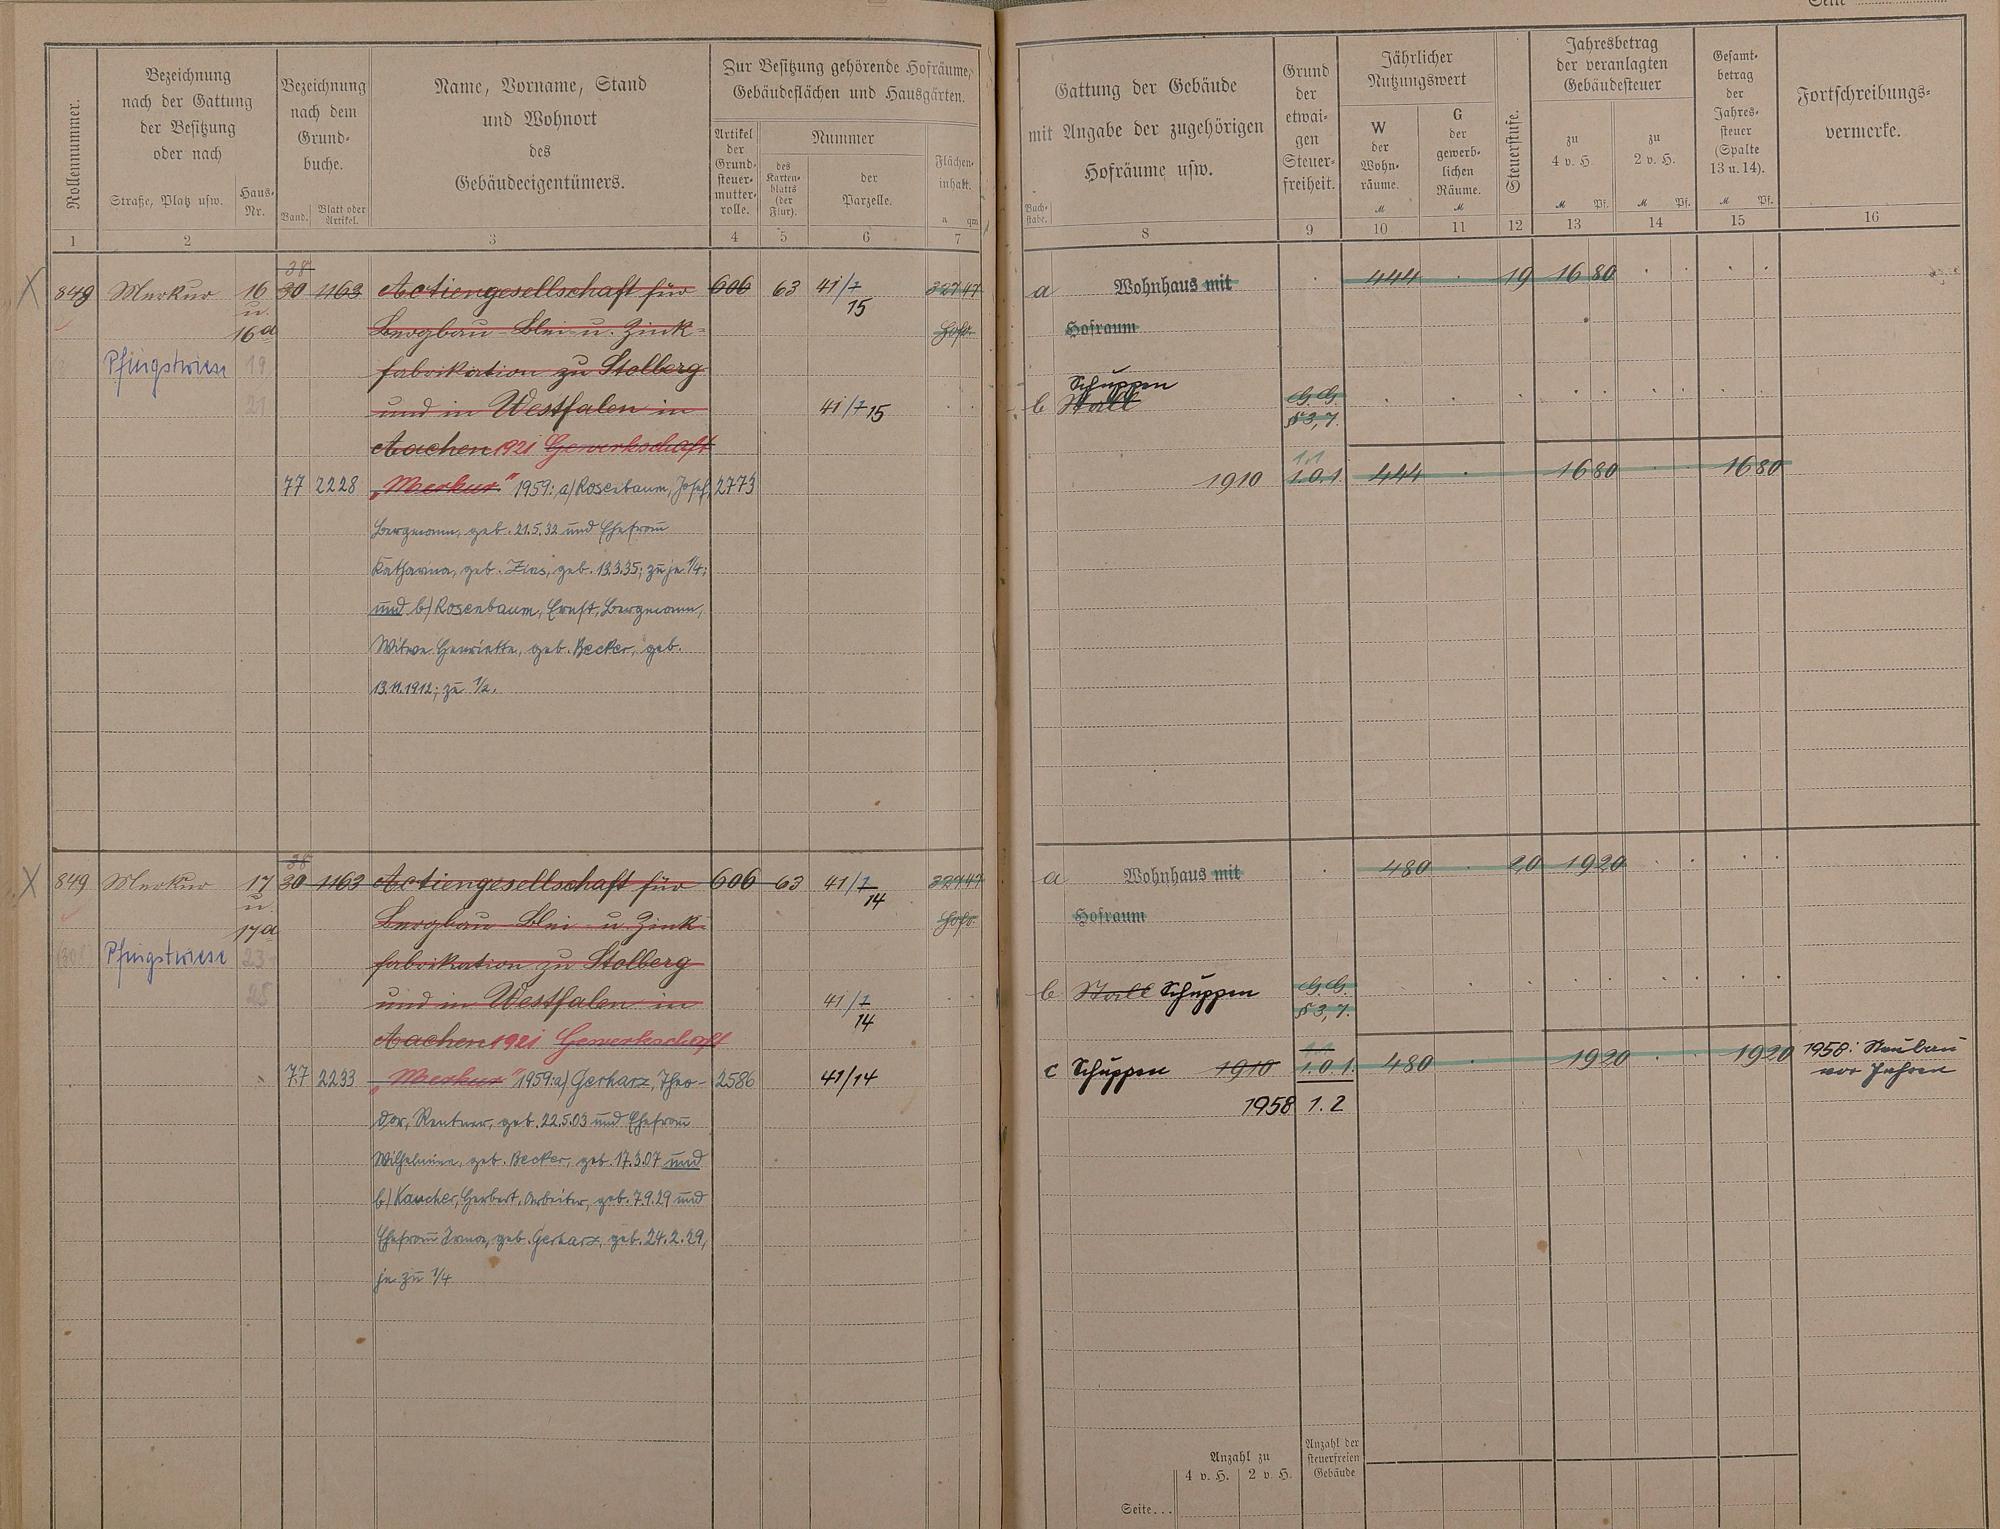 Rollennummer.
Bezeichnung
nach der Gattung
der Besitzung
oder nach
Straße, Platz usw.
Haus-
Nr.
Bezeichnung
nach dem
Grund-
buche.
Band.
Blatt oder
Artikel.
Name, Vorname, Stand
und Wohnort
des
Gebäudeeigentümers.
Zur Besitzung gehörende Hofräume,
Gebäudeflächen und Hausgärten.
Artikel
der
Grund-
steuer-
mutter-
rolle.
Nummer
des
Karten-
blatts
(der
Flur).
der
Parzelle.
Flächen-
inhalt.
a qm
1 2 3 4 5 6 7
38
849 Merkur 16 30 1163 Actiengesellschaft für 606 63 41/7 32747
u. 15
16a Bergbau Blei u. Zink- Hofr.
Pfingstwiese 19 fabrikation zu Stolberg
21 und in Westfalen in 41/7 15
Aachen 1921 Gewerkschaft
77 2228 „Merkur" 1959: a) Rosenbaum, Josef, 2773
Bergmann, geb. 21.5.32 und Ehefrau
Katharina, geb. Zins, geb. 13.3.35; zu je 1/4;
und b) Rosenbaum, Ernst, Bergmann,
Witwe Henriette, geb. Becker, geb.
13.11.1912; zu 1/2.
38
849 Merkur 17 30 1163 Actiengesellschaft für 606 63 41/7 32747
u. 14
17a Bergbau Blei u. Zink- Hofr.
Pfingstwiese 23 fabrikation zu Stolberg
25 und in Westfalen in 41/7
14
Aachen 1921 Gewerkschaft
77 2233 „Merkur" 1959: a) Gerharz, Theo- 2586 41/14
dor, Rentner, geb. 22.5.03 und Ehefrau
Wilhelmine, geb. Becker, geb. 17.3.07 und
b) Kaucher, Herbert, Arbeiter, geb. 7.9.29 und
Ehefrau Irma, geb. Gerharz, geb. 24.2.29,
je zu 1/4
Seite
Gattung der Gebäude
mit Angabe der zugehörigen
Hofräume usw.
Buch-
stabe.
Grund
der
etwai-
gen
Steuer-
freiheit.
Jährlicher
Nutzungswert
W
der
Wohn-
räume.
M
G
der
gewerb-
lichen
Räume.
M
Steuerstufe.
Jahresbetrag
der veranlagten
Gebäudesteuer
zu
4 v. H.
M Pf.
zu
2 v. H.
M Pf.
Gesamt-
betrag
der
Jahres-
steuer
(Spalte
13 u. 14).
M Pf.
Fortschreibungs-
vermerke.
8 9 10 11 12 13 14 15 16
a Wohnhaus mit 444 19 16 80
Hofraum
Schuppen
b Stall G.G.
§ 3,7.
1.1
1910 1.0.1 444 16 80 16 80
a Wohnhaus mit 480 20 19 20
Hofraum
b Stall Schuppen G.G.
§ 3,7.
1.1
c Schuppen 1910 1.0.1. 480 19 20 19 20 1958: Neubau
vor Jahren
1958 1.2
Anzahl zu
4 v. H. 2 v. H.
Anzahl der
steuerfreien
Gebäude
Seite...